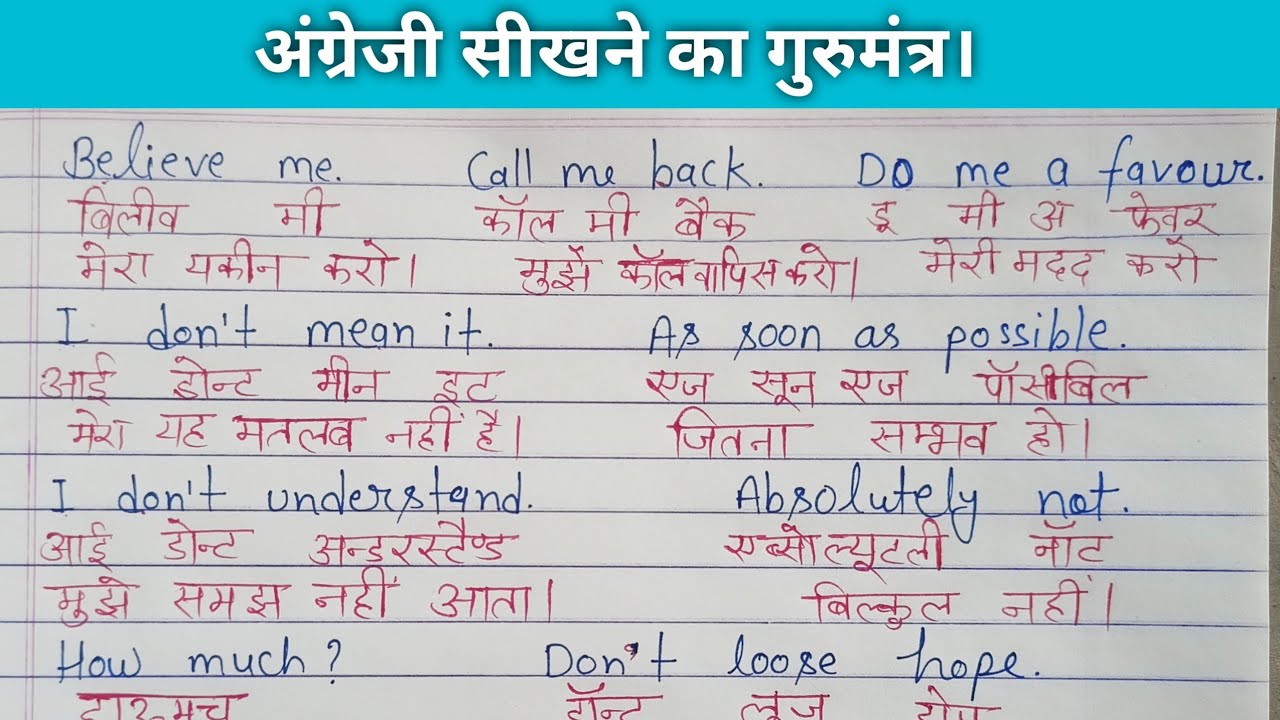 अंग्रेजी सीखने का गुरुमंत्र।
Believe me. Call me back. Do me a favour.
बिलीव मी कॉल मी बैक डू मी अ फेवर
मेरा यकीन करो। मुझे कॉल वापिस करो। मेरी मदद करो
I don't mean it. As soon as possible.
आई डोन्ट मीन इट एज सून एज पॉसीबिल
मेरा यह मतलब नहीं है। जितना सम्भव हो।
I don't understand. Absolutely not.
आई डोन्ट अन्डरस्टैण्ड एब्सोल्यूटली नॉट
मुझे समझ नहीं आता। बिल्कुल नहीं।
How much? Don't loose hope.
मच डॉन्ट लूज होप